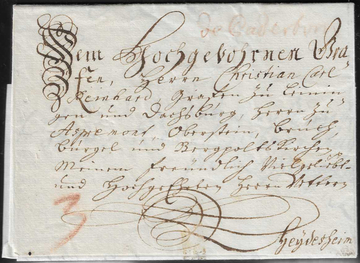 de Paderborn
Dem Hochgebohrnen Gra
fen, Herrn Christian Carl
Reinhard Grafen zu Leinin
gen und Dachsburg, Herrn zu
Aspremont, Oberstein, Bruch
bürgel und Forpoltskirchen
Meinem freundlich Vielgeliebten
und Hochgeehrten Herrn Vettern
3
Heydesheim